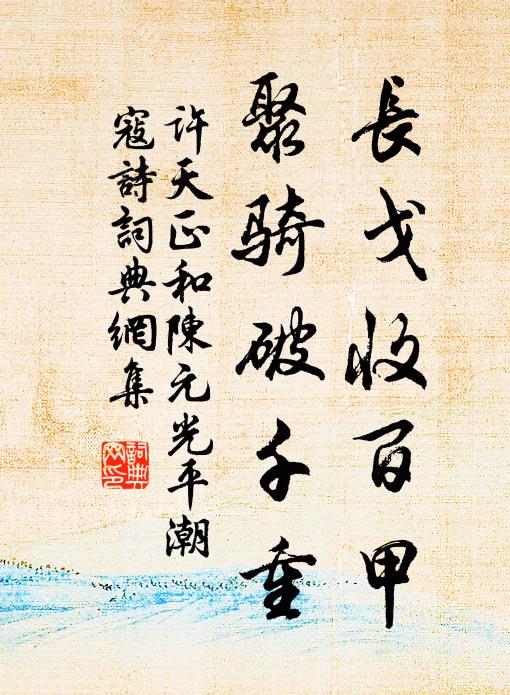 長戈收百甲
聚騎破千重
許天正和陳元光平潮
寇詩詞典網集
詞典
网印